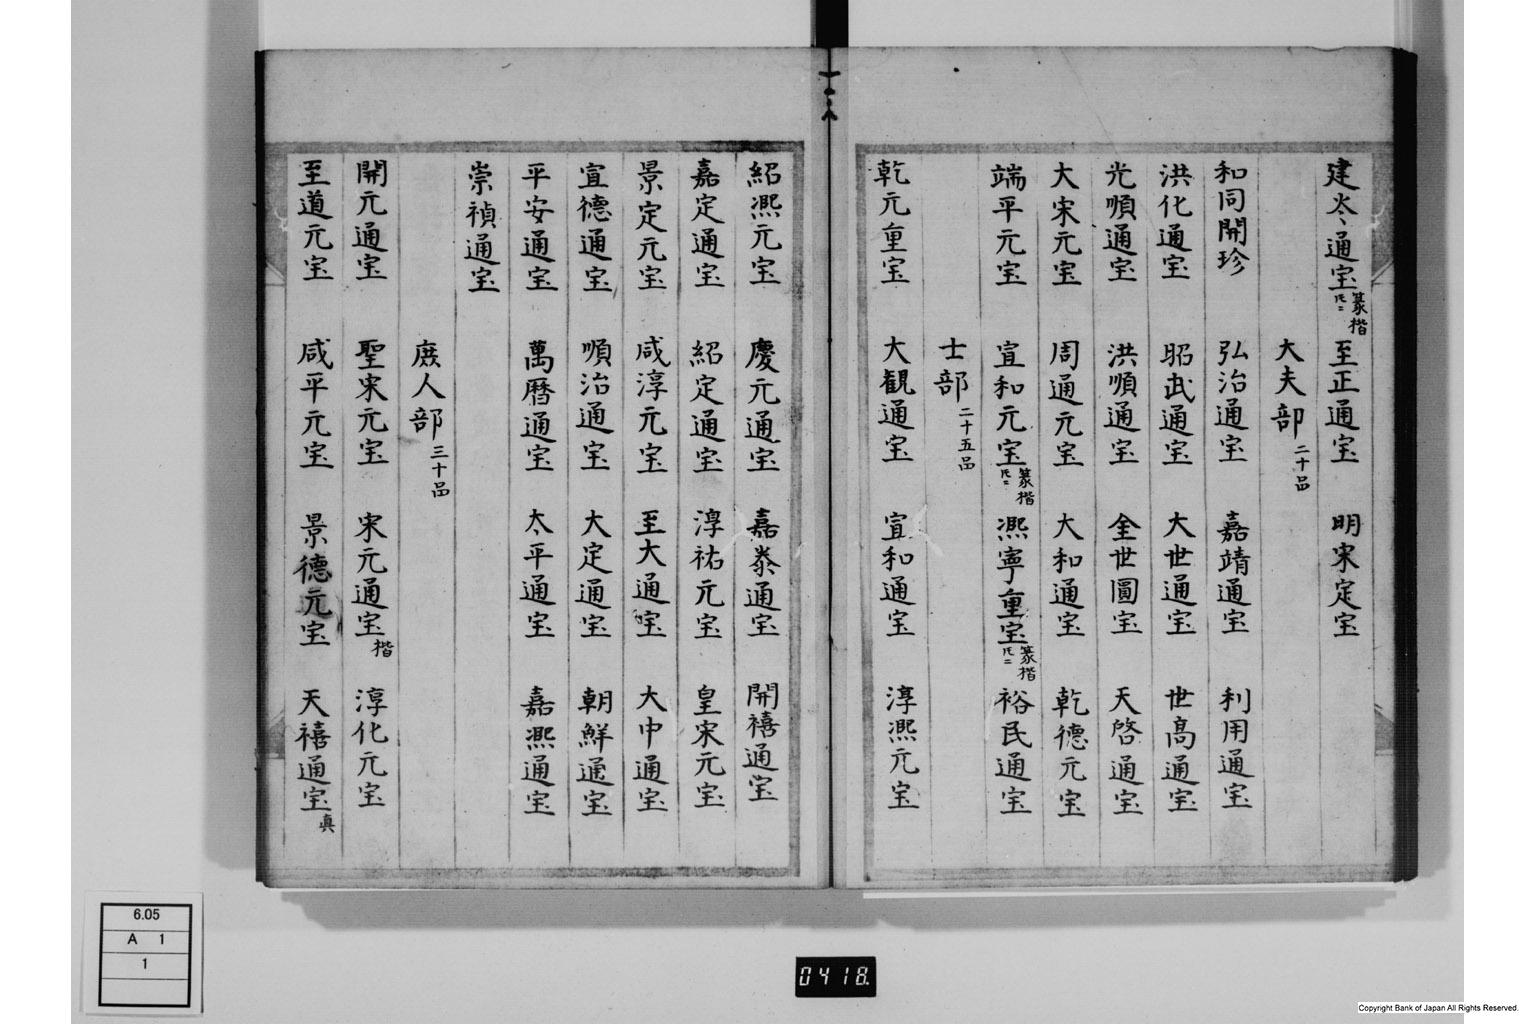 建炎通宝篆楷尺二 至正通宝 明宋定宝
大夫部二十品
和同開珍 弘治通宝 嘉靖通宝 利用通宝
洪化通宝 昭武通宝 大世通宝 世高通宝
光順通宝 洪順通宝 全世圖宝 天啓通宝
大宋元宝 周通元宝 大和通宝 乾德元宝
端平元宝 宣和元宝篆楷尺二 熈寧重宝篆楷尺二 裕民通宝
士部二十五品
乾元重宝 大観通宝 宣和通宝 淳熈元宝
紹熈元宝 慶元通宝 嘉泰通宝 開禧通宝
嘉定通宝 紹定通宝 淳祐元宝 皇宋元宝
景定元宝 咸淳元宝 至大通宝 大中通宝
宣德通宝 順治通宝 大定通宝 朝鮮通宝
平安通宝 萬曆通宝 太平通宝 嘉熈通宝
崇禎通宝
庶人部三十品
開元通宝 聖宋元宝 宋元通宝楷 淳化元宝
至道元宝 咸平元宝 景德元宝 天禧通宝真
6.05
A 1
1
0418.
Copyright Bank of Japan All Rights Reserved.